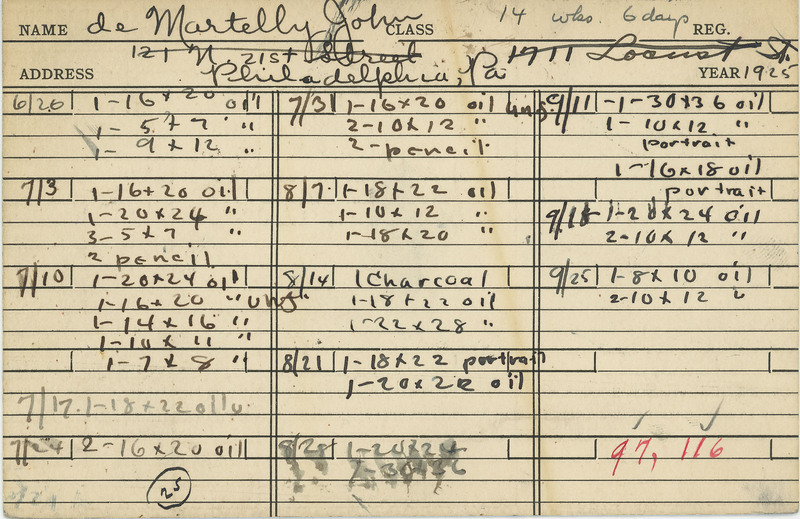 NAME de Martelly John CLASS 14 wks. 6 days REG.
121 N 21st Street 1711 Locust St.
ADDRESS Philadelphia, Pa YEAR 1925
6/26 1-16x20 oil
1- 5x7 "
1- 9x12 "
7/3 1-16x20 oil
1-20x24 "
3-5x7 "
2 pencil
7/10 1-20x24 oil
1-16x20 " unf"
1-14x16 "
1-10x11 "
1-7x8 "
7/17 1-18x22 oil
7/24 2-16x20 oil
25
7/31 1-16x20 oil unf.
2-10x12 "
2-pencil
8/7 1-18x22 oil
1-10x12 "
1-18x20 "
8/14 1 Charcoal
1-18x22 oil
1-22x28 "
8/21 1-18x22 portrait
1-20x22 oil
8/28 1-20x24
2-30x36
9/11 -1-30x36 oil
1-10x12 "
portrait
1-16x18 oil
portrait
9/18 1-20x24 oil
2-10x12 "
9/25 1-8x10 oil
2-10x12 "
97, 116